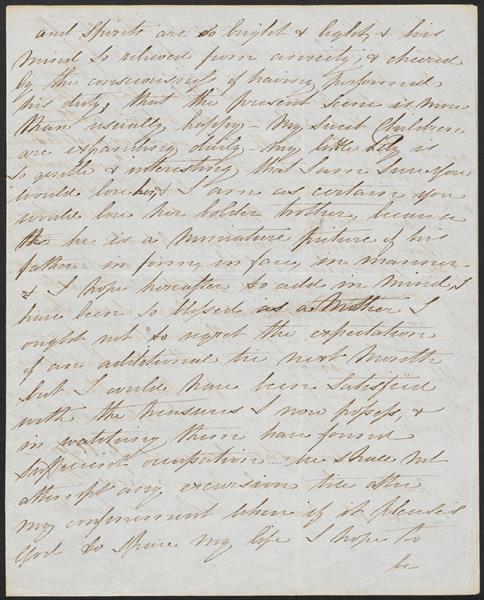 and Spirits are so bright & light, & his
mind so relieved from anxiety, & cheered
by the consciousness of having performed
his duty, that the present scene is more
than usually happy – My Sweet Children
are expanding daily – my little Lily is
so gentle & interesting that I am sure you
would love her, & I am as certain you
would love her bolder brother, because
he is a miniature picture of his
father in form, in face, in manner
& I hope hereafter to add in mind, I
have been so blessed as a Mother I
ought not to regret the expectation
of an additional tie next Month
but I would have been Satisfied
with the treasures I now possess, &
in watching them have found
sufficient occupation – we shall not
attempt any excursion till after
my confinement when if it pleases
God to spare my life I hope to
be